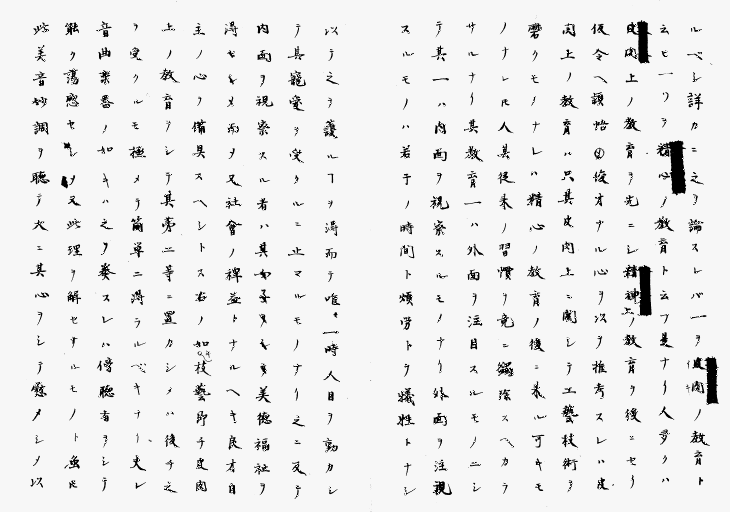 ルベシ詳カニ之ヲ論スレバ一ヲ皮肉ノ教育ト
云ヒ一ツヲ精心ノ教育ト云フ是ナリ人多クハ
皮肉上ノ教育ヲ先ニシ精神上ノ教育ヲ後ニセリ
仮令ヘ頴悟俊才ナル心ヲ以テ推考スレハ皮
肉上ノ教育ハ只其皮肉上ニ関シテ工藝技術ヲ
磨クモノナレハ精心ノ教育ノ後ニ来ル可キモ
ノナレ圧人其従来ノ習慣ヲ竟ニ スヘカラ
サルナリ其教育一ハ外面ヲ注目スルモノニシ
テ其一ハ内面ヲ視察スルモノナリ外面ヲ注視
スルモノハ若干ノ時間ト煩労トヲ犠牲トナシ
以テ之ヲ護ルヿヲ得而テ唯一時人目ヲ動カシ
テ其寵愛ヲ受クルニ止マルモノナリ之ニ反テ
内面ヲ視察スル者ハ其 美徳福祉ヲ
得セキメ而ヲ又社會ノ裨益トナルヘキ良才自
主ノ心ヲ備具スヘシトス右ノ如技藝即チ皮肉
上ノ教育ヲシテ其第二等ニ置カシメハ後チ之
ヲ受クルモ極メテ簡単ニ得ラルベキナリ夫レ
音曲楽器ノ如キハ之ヲ奏スレハ傍聴有ヲシテ
能ク蕩感セシ 又此理ヲ解セサルモノト 圧
此美音妙調ヲ聴テ大ニ其心ヲシテ慰メシメ以